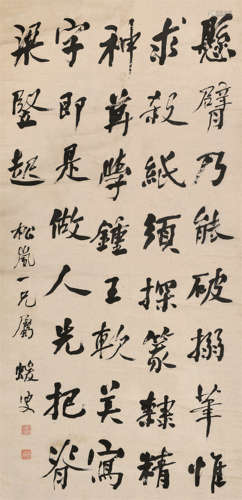 懸臂乃能破搦筆惟
求殺紙須探篆隸精
神莫學鍾王軟美寫
字即是做人先把脊
梁豎起
松嵐一兄屬 蝯叟